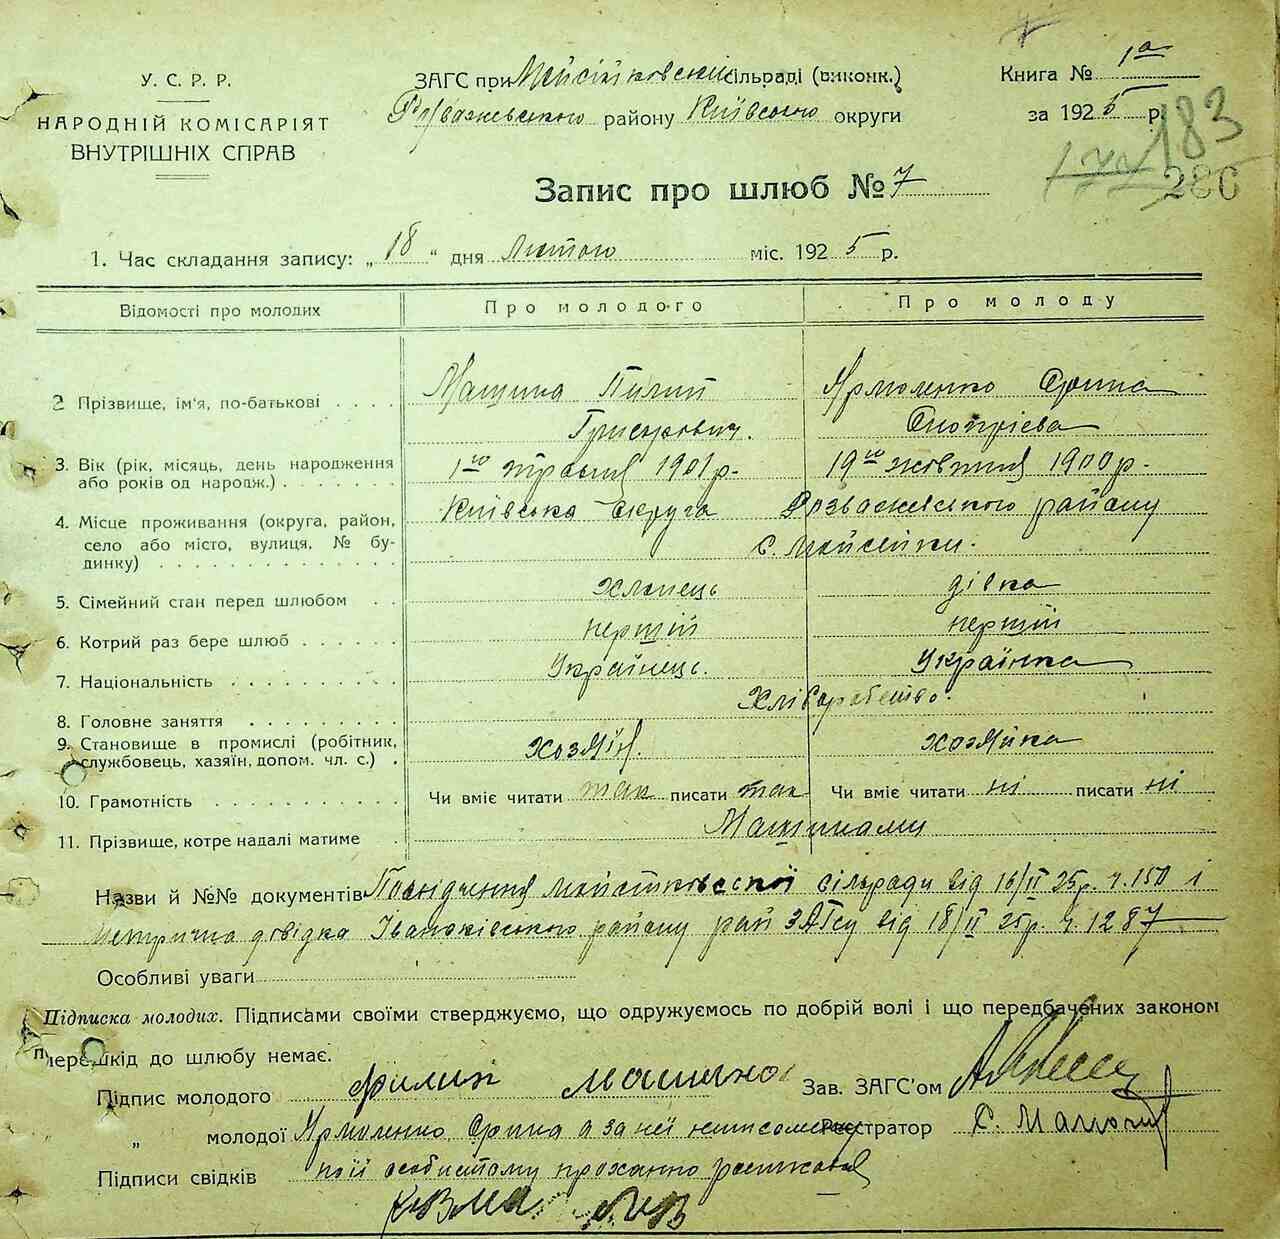 У. С. Р. Р.
НАРОДНІЙ КОМІСАРІЯТ
ВНУТРІШНІХ СПРАВ
ЗАГС при Мойсійковский сільраді (виконк.)
Розважевського району Київської округи
Книга № 1а
за 1925 р.
183
286
Запис про шлюб № 7
1. Час складання запису: „18“ дня лютого міс. 1925 р.
Відомості про молодих Про молодого Про молоду
2 Прізвище, ім'я, по-батькові . . . . Машина Пилип Ярмоленко Орина
Григорович. Оноприєва
3. Вік (рік, місяць, день народження 1го травня 1901 р. 19го жовтня 1900 р.
або років од народж.) . . . . . . .
4. Місце проживання (округа, район, Київська округа Розважевського району
село або місто, вулиця, № бу- с. Мойсейки.
динку) . . . . . . . . . . . . . .
5. Сімейний стан перед шлюбом . . хлопець дівка
6. Котрий раз бере шлюб . . . . . . перший перший
7. Національність . . . . . . . . . . Українець. Українка
8. Головне заняття . . . . . . . . . Хліборобство.
9. Становище в промислі (робітник, хозяїн. хозяйка
службовець, хазяїн, допом. чл. с.) .
10. Грамотність . . . . . . . . . . . Чи вміє читати так писати так Чи вміє читати ні писати ні
11. Прізвище, котре надалі матиме . Машинами
Назви й №№ документів Посвідчення мойсіковської сільради від 16/II 25р. ч. 150 і
метрична довідка Іванківського району рай ЗАГСу від 18/II 25р. ч. 1287
Особливі уваги
Підписка молодих. Підписами своїми стверджуємо, що одружуємось по добрій волі і що передбачених законом
перешкід до шлюбу немає.
Підпис молодого Филип Машина Зав. ЗАГС'ом
„ молодої Ярмоленко Орина а за неї неписьмену Реєстратор С.
Підписи свідків по її особистому проханню росписався
Кузма